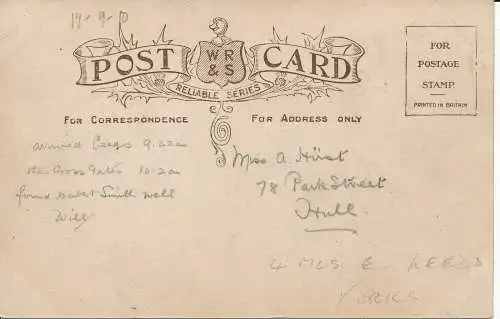 14-9-10
POST CARD
W R & S
RELIABLE SERIES
FOR POSTAGE STAMP
PRINTED IN BRITAIN
FOR CORRESPONDENCE
FOR ADDRESS ONLY
arrived Leeds 9.22am
the Cross Gates 10.2am
found Smith well
Will
Miss A. Hirst
78 Park Street
Hull
4 MLS E LEEDS
YORKS